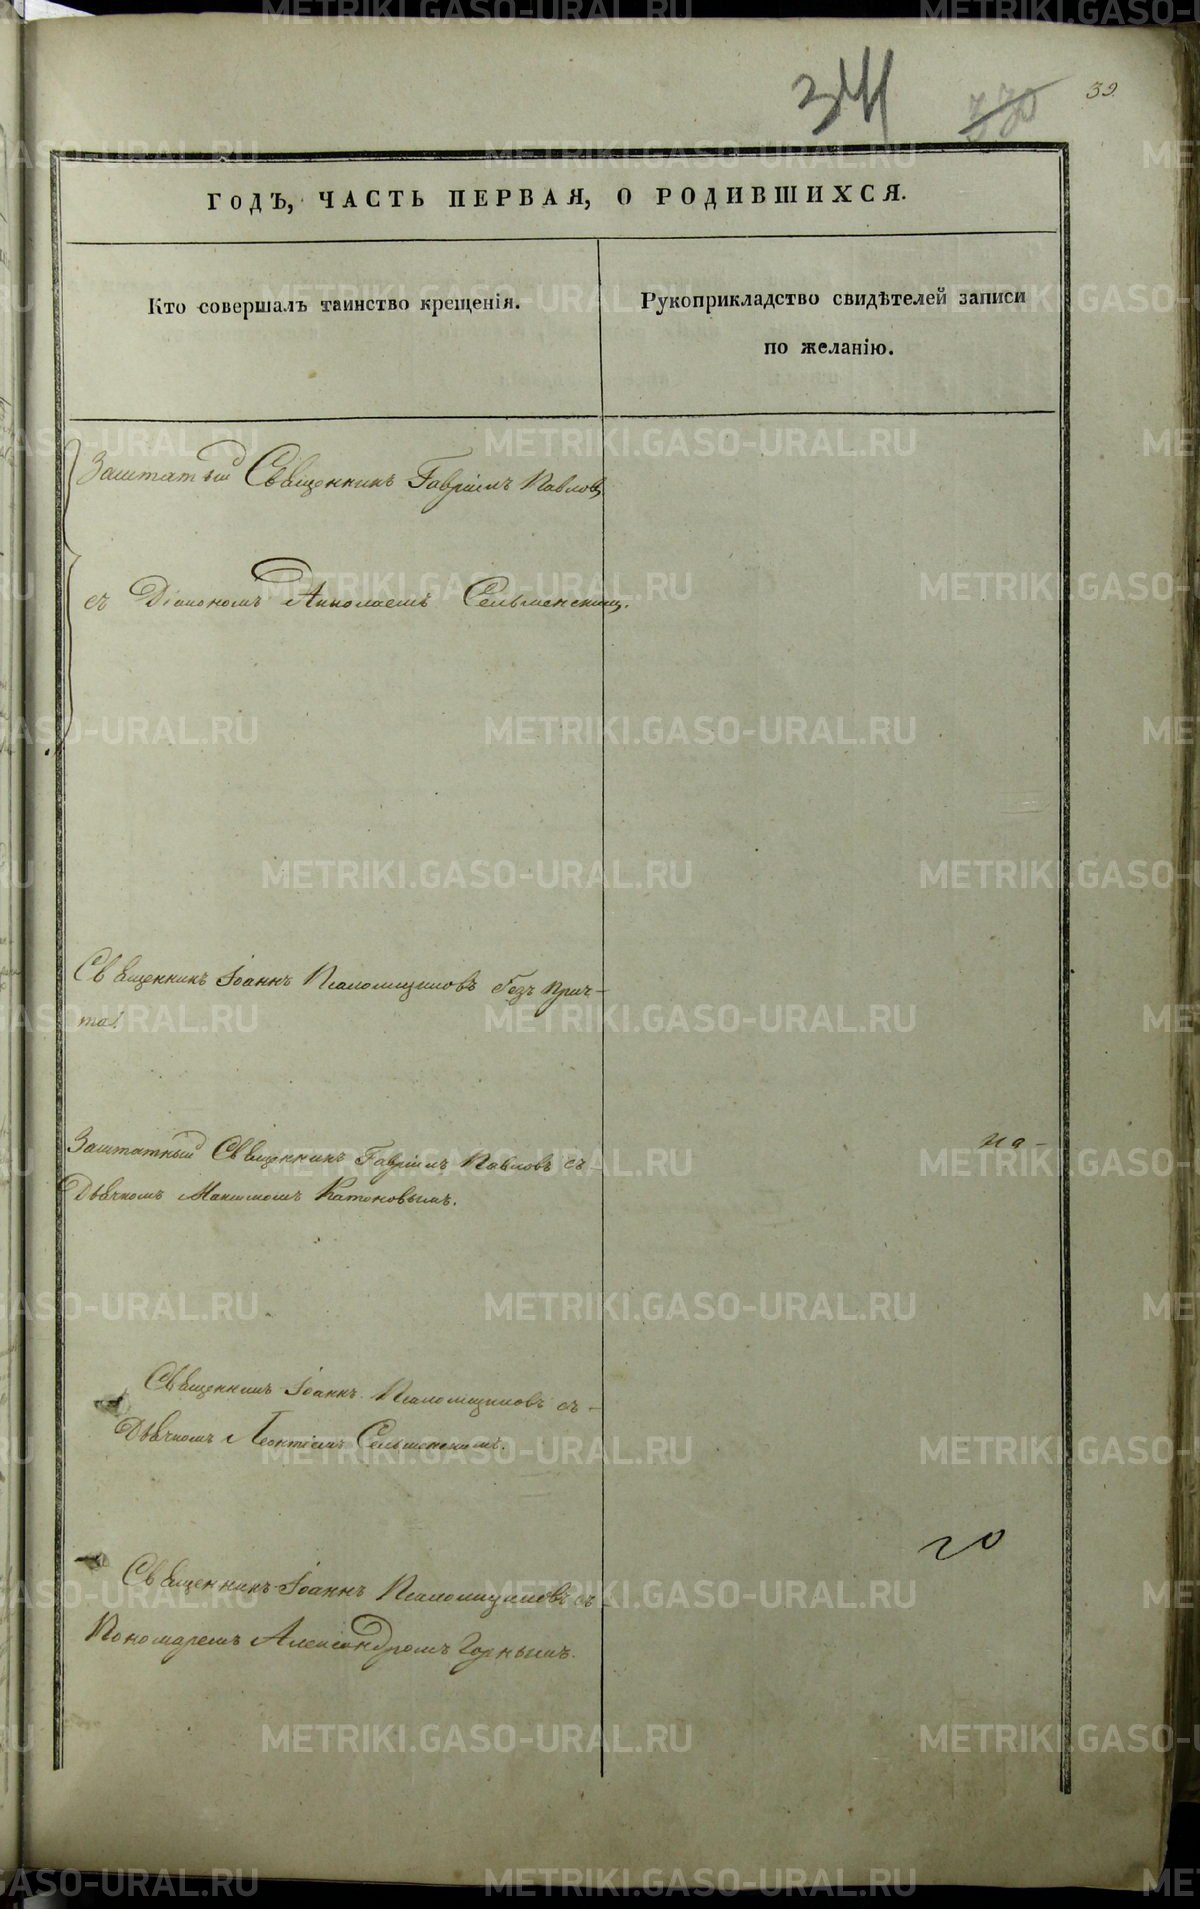 341 330 39.
ГОДЪ, ЧАСТЬ ПЕРВАЯ, О РОДИВШИХСЯ.
Кто совершалъ таинство крещенія.
Рукоприкладство свидѣтелей записи
по желанію.
Заштатный Священникъ Гавріилъ Павловъ
съ Діакономъ Николаемъ Сельменскимъ.
Священникъ Іоаннъ Псаломщиковъ безъ прич-
та.
Заштатный Священникъ Гавріилъ Павловъ съ
Дьячкомъ Максимомъ Катоновымъ.
на-
Священникъ Іоаннъ Псаломщиковъ съ
Дьячкомъ Леонтіемъ Сельменскимъ.
го
Священникъ Іоаннъ Псаломщиковъ съ
Пономаремъ Александромъ Горнымъ.
METRIKI.GASO-URAL.RU